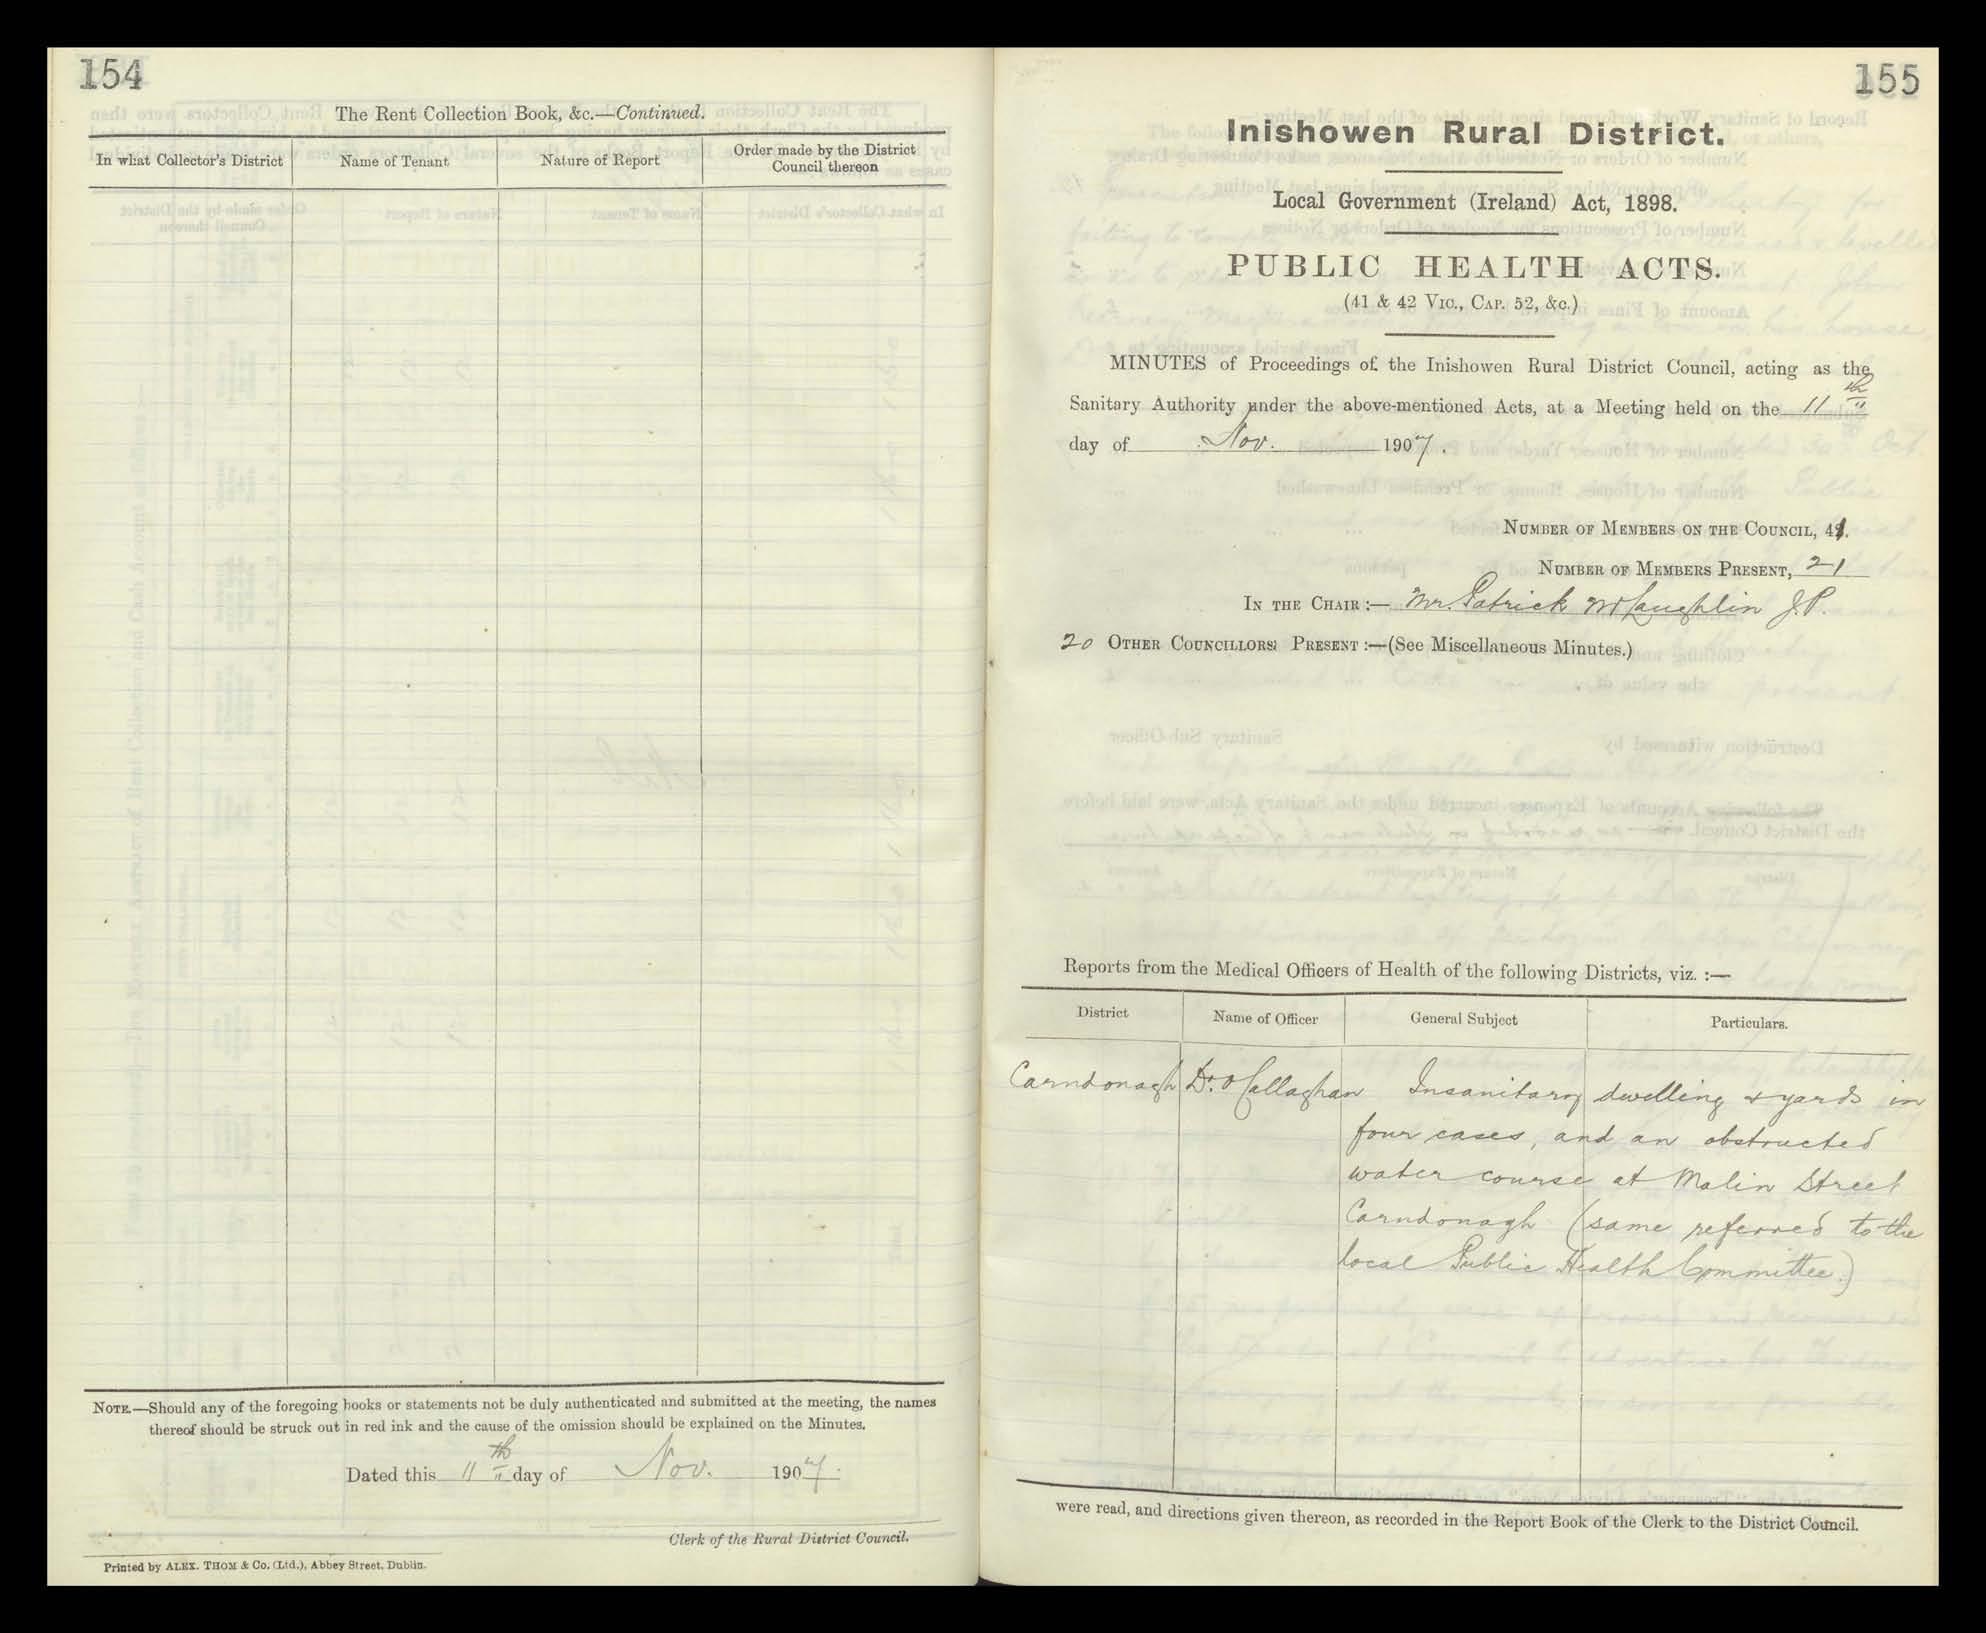 154
The Rent Collection Book, &c.—Continued.
In what Collector's District
Name of Tenant
Nature of Report
Order made by the District
Council thereon
NOTE.—Should any of the foregoing books or statements not be duly authenticated and submitted at the meeting, the names
thereof should be struck out in red ink and the cause of the omission should be explained on the Minutes.
Dated this 11th day of Nov. 1907.
Clerk of the Rural District Council.
Printed by ALEX. THOM & Co. (Ltd.), Abbey Street, Dublin.
155
Inishowen Rural District.
Local Government (Ireland) Act, 1898.
PUBLIC HEALTH ACTS.
(41 & 42 VIC., CAP. 52, &c.)
MINUTES of Proceedings of the Inishowen Rural District Council, acting as the
Sanitary Authority under the above-mentioned Acts, at a Meeting held on the 11th
day of Nov. 1907.
NUMBER OF MEMBERS ON THE COUNCIL, 41.
NUMBER OF MEMBERS PRESENT, 21
IN THE CHAIR :— Mr. Patrick McLaughlin J.P.
20 OTHER COUNCILLORS PRESENT :—(See Miscellaneous Minutes.)
Reports from the Medical Officers of Health of the following Districts, viz. :—
District
Name of Officer
General Subject
Particulars.
Carndonagh Dr. O'Callaghan Insanitary dwelling & yards in
four cases, and an obstructed
water course at Malin Street
Carndonagh (same referred to the
local Public Health Committee.)
were read, and directions given thereon, as recorded in the Report Book of the Clerk to the District Council.